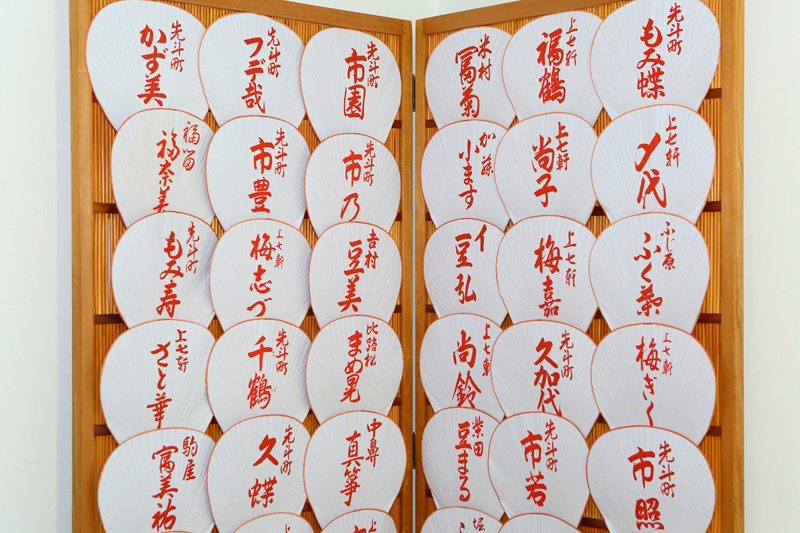 先斗町
かず美
先斗町
フデ哉
先斗町
市園
福留
福奈美
先斗町
市豊
先斗町
市乃
先斗町
もみ寿
上七軒
梅志づ
吉村
豆美
上七軒
さと華
先斗町
千鶴
比路松
まめ晃
駒屋
冨美祐
先斗町
久蝶
中鼻
真箏
米村
冨菊
上七軒
福鶴
先斗町
もみ蝶
加藤
小ます
上七軒
尚子
上七軒
〆代
イ
豆弘
上七軒
梅嘉
ふじ原
上七軒
尚鈴
先斗町
久加代
上七軒
梅ぎく
柴田
豆まる
先斗町
市若
先斗町
市照
堀